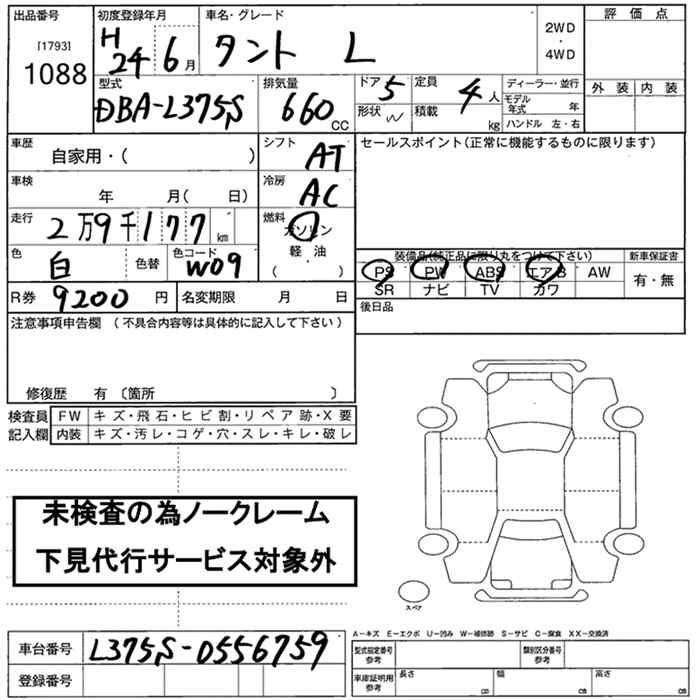 出品番号
[1793]
1088
初度登録年月
H 24 6月
車名・グレード
タント L
2WD
・
4WD
評価点
外装 内装
型式
DBA-L375S
排気量
660 CC
ドア 5
形状 W
定員 4人
積載 kg
ディーラー・並行
モデル年式 年
ハンドル 左・右
車歴
自家用・( )
シフト
AT
セールスポイント(正常に機能するものに限ります)
車検
年 月( 日)
冷房
AC
走行
2万9千177 km
燃料
ガソリン
軽・油
( )
色
白
色替
色コード
W09
装備品(純正品に限り丸をつけて下さい)
PS PW ABS エアB AW
SR ナビ TV カワ
新車保証書
有・無
R券 9200 円
名変期限 月 日
後日品
注意事項申告欄 (不具合内容等は具体的に記入して下さい)
修復歴 有 〔箇所 〕
検査員
記入欄
FW キズ・飛石・ヒビ割・リペア跡・X要
内装 キズ・汚レ・コゲ・穴・スレ・キレ・破レ
未検査の為ノークレーム
下見代行サービス対象外
スペア
A-キズ E-エクボ U-凹み W-補修跡 S-サビ C-腐食 XX-交換済
車台番号 L375S-0556759
登録番号
型式指定番号
参考
類別区分番号
参考
車庫証明用
参考
長さ cm
幅 cm
高さ cm